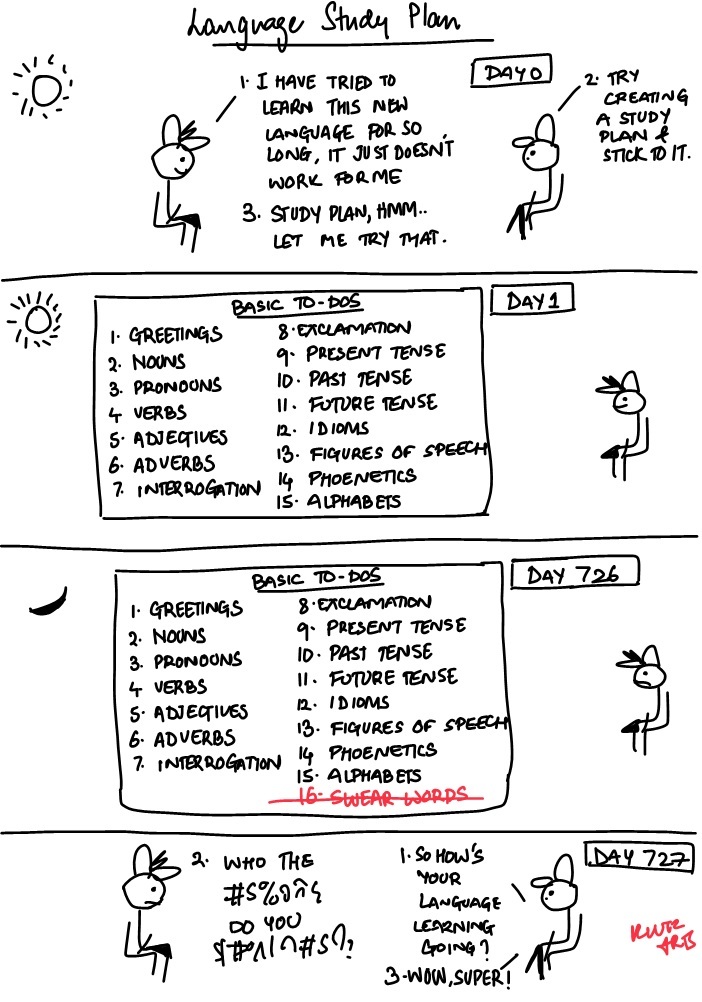 Language Study Plan
DAY 0
1. I HAVE TRIED TO
LEARN THIS NEW
LANGUAGE FOR SO
LONG, IT JUST DOESN'T
WORK FOR ME
2. TRY
CREATING
A STUDY
PLAN &
STICK TO IT.
3. STUDY PLAN, HMM..
LET ME TRY THAT.
DAY 1
BASIC TO-DOS
1. GREETINGS
2. NOUNS
3. PRONOUNS
4 VERBS
5. ADJECTIVES
6. ADVERBS
7. INTERROGATION
8. EXCLAMATION
9. PRESENT TENSE
10. PAST TENSE
11. FUTURE TENSE
12. IDIOMS
13. FIGURES OF SPEECH
14 PHOENETICS
15. ALPHABETS
DAY 726
BASIC TO-DOS
1. GREETINGS
2. NOUNS
3. PRONOUNS
4 VERBS
5. ADJECTIVES
6. ADVERBS
7. INTERROGATION
8. EXCLAMATION
9. PRESENT TENSE
10. PAST TENSE
11. FUTURE TENSE
12. IDIOMS
13. FIGURES OF SPEECH
14 PHOENETICS
15. ALPHABETS
16. SWEAR WORDS
DAY 727
1. SO HOW'S
YOUR
LANGUAGE
LEARNING
GOING?
2. WHO THE
DO YOU
3-WOW, SUPER!
ARTS